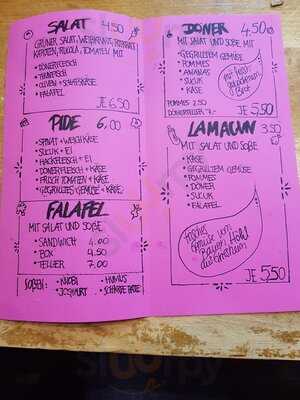 SALAT 4.50
GRÜNER SALAT, WEIßKRAUT, ROTKRAUT
KAROTTEN, RUCOLA, TOMATEN MIT
• DÖNERFLEISCH
• THUNFISCH
• OLIVEN + SCHAFSKÄSE
• FALAFEL
JE 6,50
PIDE 6,00
• SPINAT + WEICHKÄSE
• SUCUK + EI
• HACKFLEISCH + EI
• DÖNERFLEISCH + KÄSE
• FRISCH TOMATEN + KÄSE
• GEGRILLTES GEMÜSE + KÄSE
FALAFEL
MIT SALAT UND SOßE
• SANDWICH 4.00
• BOX 4.50
• TELLER 7.00
SOßEN:
• HUMUS
• JOGHURT
• SCHARFE
DÖNER 4.50
MIT SALAT UND SOßE MIT
• GEGRILLTEM GEMÜSE
• POMMES
• ANANAS
• SUCUK
• KÄSE
Brot
JE 5,50
POMMES 2.50
DÖNERTELLER 7.-
LAMACUN 3.50
MIT SALAT UND SOßE
• KÄSE
• GEGRILLTEM GEMÜSE
• POMMES
• DÖNER
• SUCUK
• FALAFEL
Frisches
Gemüse vom
Bauern
aus
JE 5,50